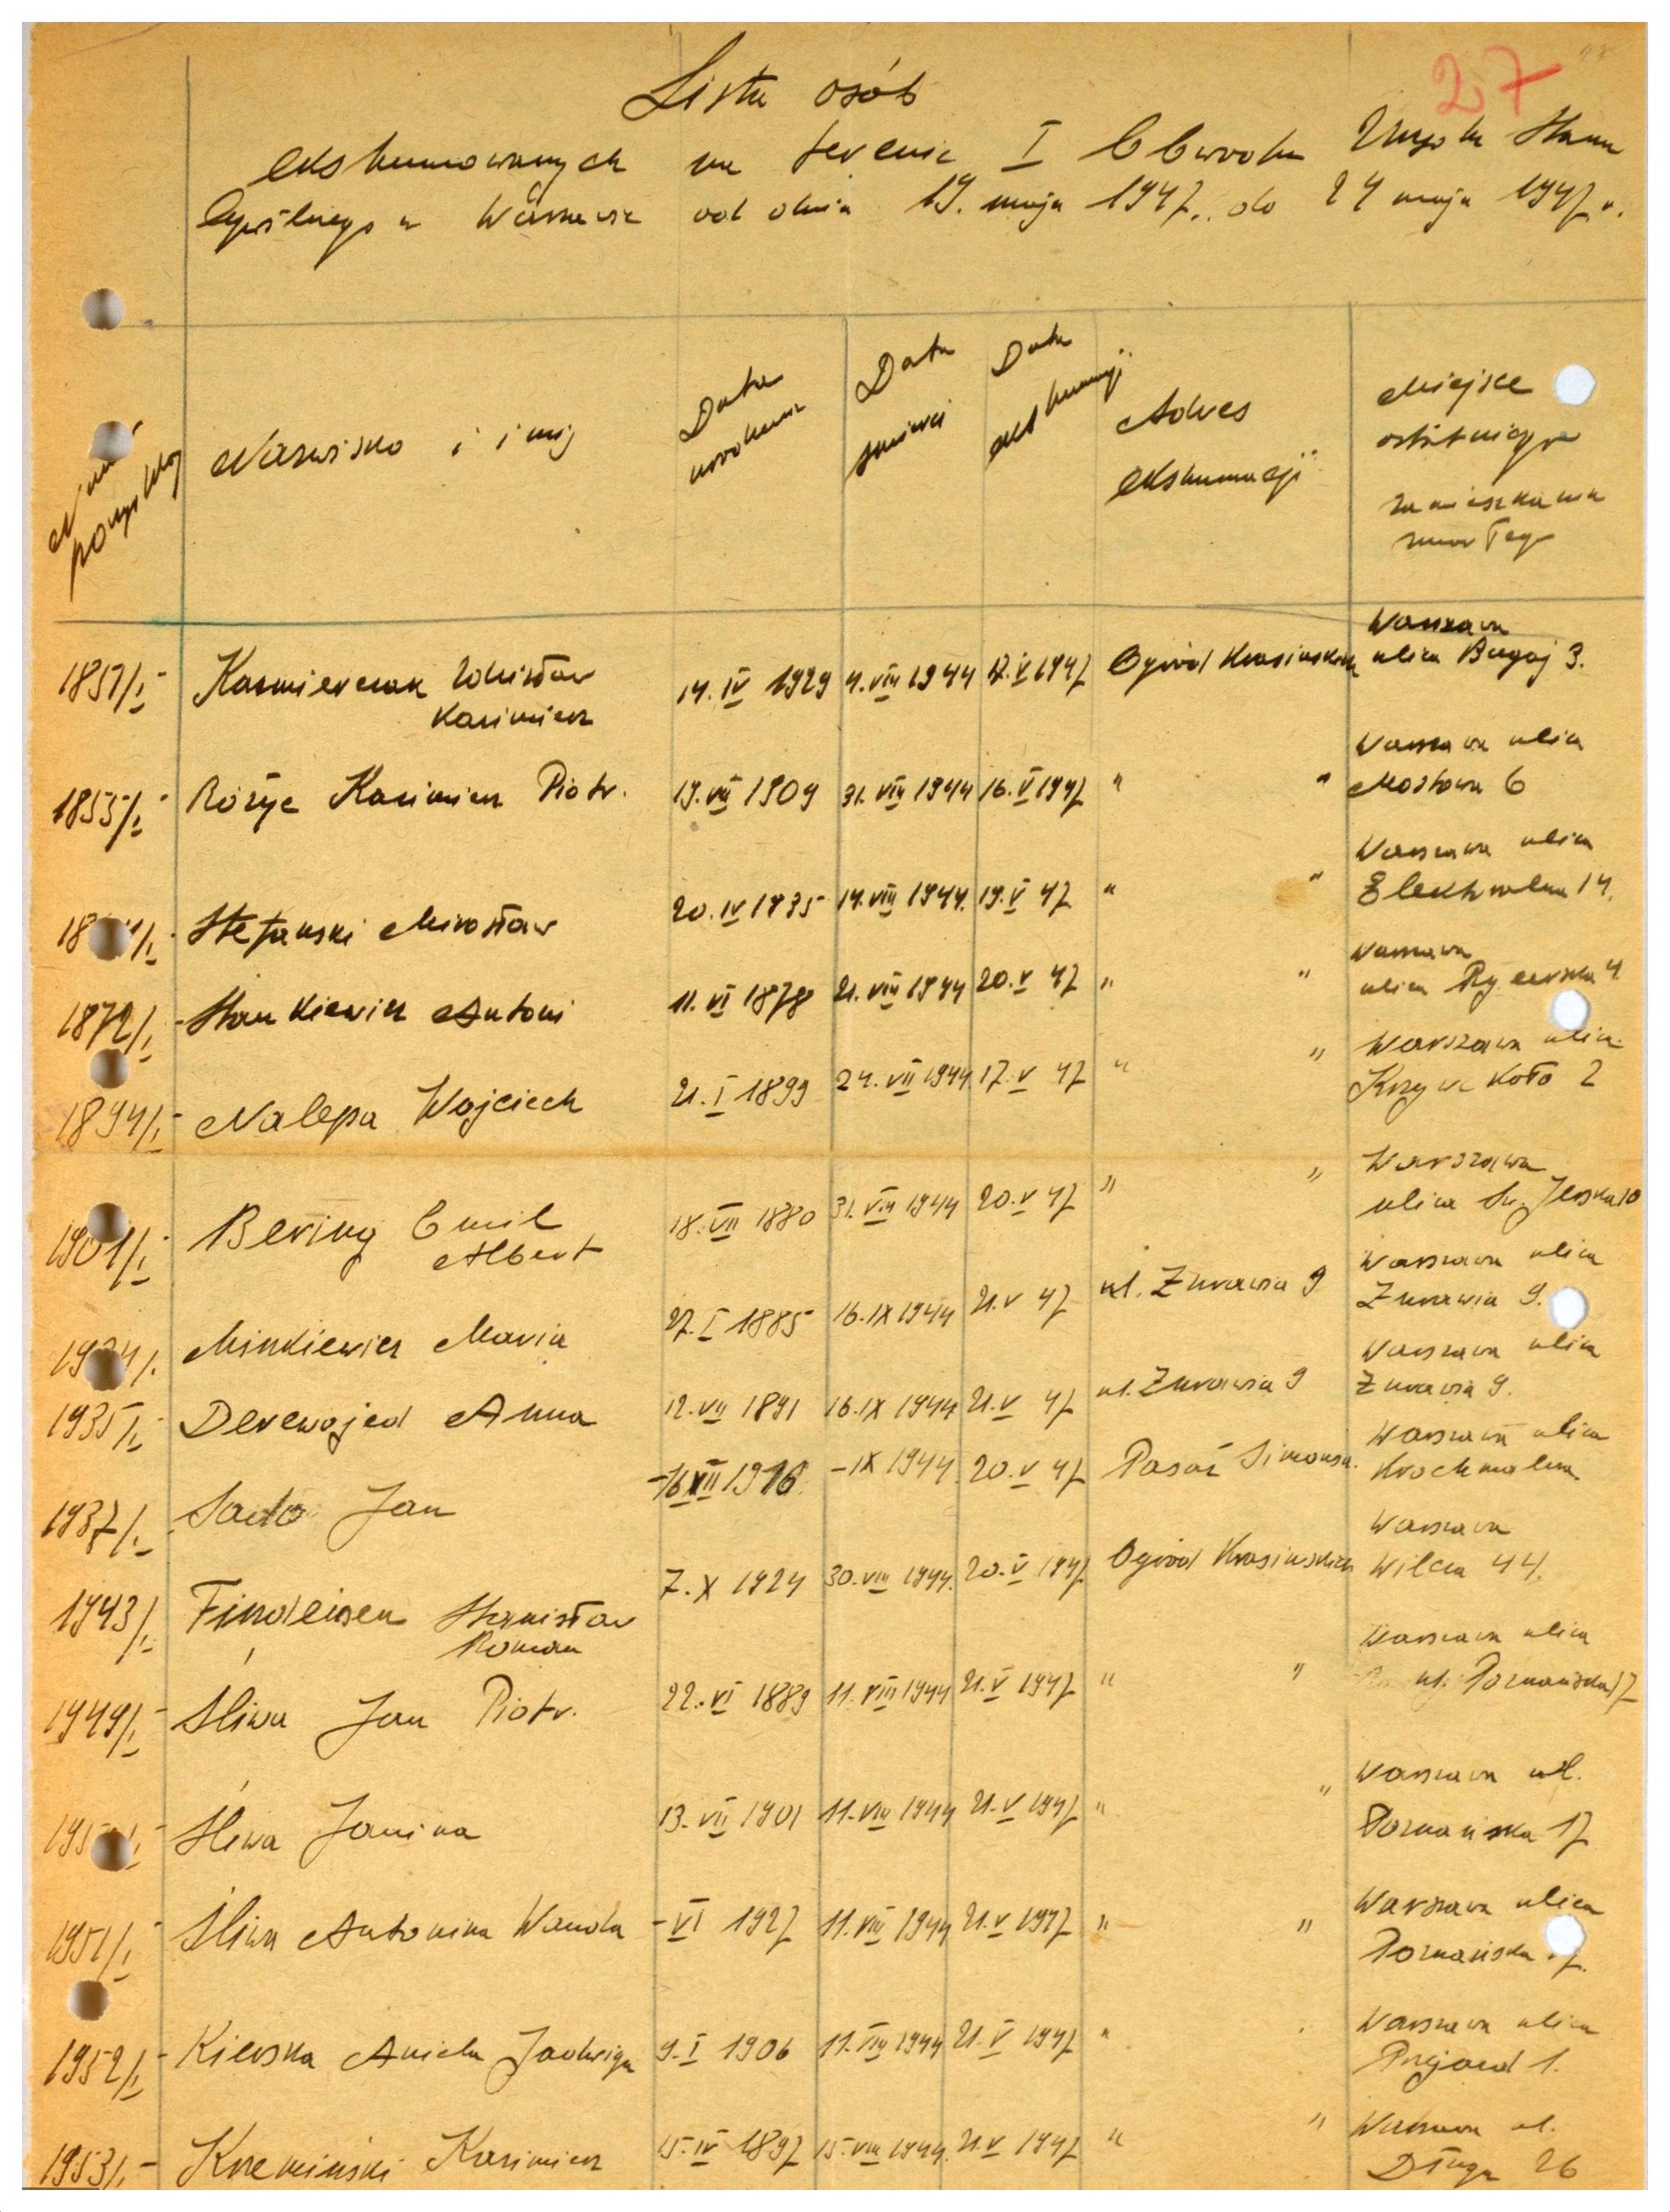 27
Lista osób
ekshumowanych na terenie I Obwodu Urzędu Stanu
Cywilnego w Warszawie od dnia 19. maja 1947.. do 24 maja 1947 r.
Nazwisko i imię
Data urodzenia
Data śmierci
Data ekshumacji
Adres
ekshumacji
Miejsce
ostatniego
zamieszkania
zmarłego
1851/I - Kazmierczak Zdzisław Kazimierz 14. IV 1929 4. VIII 1944 17. V 1947 Ogród Krasińskich Warszawa ulica Bugaj 3.
1853/I - Różyc Kazimierz Piotr. 19. VII 1909 31. VIII 1944 16. V 1947 " " Warszawa ulica Mostowa 6
Stefanski Mirosław 20. IV 1935 14. VIII 1944. 19. V 47 " " Warszawa ulica 14.
1872/I - Stankiewicz Antoni 11. VI 1878 21. VIII 1944 20. V 47 " " Warszawa ulica Rycerska 4
1894/I - Nalepa Wojciech 21. I 1899 24. VII 1944 17. V 47 " " Warszawa ulica Krzywe Koło 2
1901/I - Bering Emil Albert 18. VII 1880 31. VIII 1944 20. V 47 " " Warszawa ulica Św. Jerska 10
Minkiewicz Maria 27. I 1885 16. IX 1944 21. V 47 ul. Żurawia 9 Warszawa ulica Żurawia 9.
1935/I - Derewojed Anna 12. VII 1891 16. IX 1944 21. V 47 ul. Żurawia 9 Warszawa ulica Żurawia 9.
1937/I - Sado Jan -16 XII 1916. - IX 1944. 20. V 47 Pasaż Simonsa. Warszawa ulica Krochmalna
1943/I - Findeisen Stanisław Roman 7. X 1924 30. VIII 1944. 20. V 1947 Ogród Krasińskich Warszawa Wilcza 44.
1949/I - Śliwa Jan Piotr. 22. VI 1889 11. VIII 1944 21. V 1947 " " Warszawa ulica ul. Poznańska 17
Śliwa Janina 13. VII 1901 11. VIII 1944 21. V 1947 " " Warszawa ul. Poznańska 17
1951/I - Śliwa Antonina Wanda - VI 1927 11. VIII 1944 21. V 1947 " " Warszawa ulica Poznańska
1952/I - Kierska Aniela Jadwiga 9. I 1906 11. VIII 1944 21. V 1947 " Warszawa ulica Przejazd 1.
1953/. - Krzemiński Kazimierz 15. IV 1897 15. VIII 1944. 21. V 1947 " " Warszawa ul. Długa 26